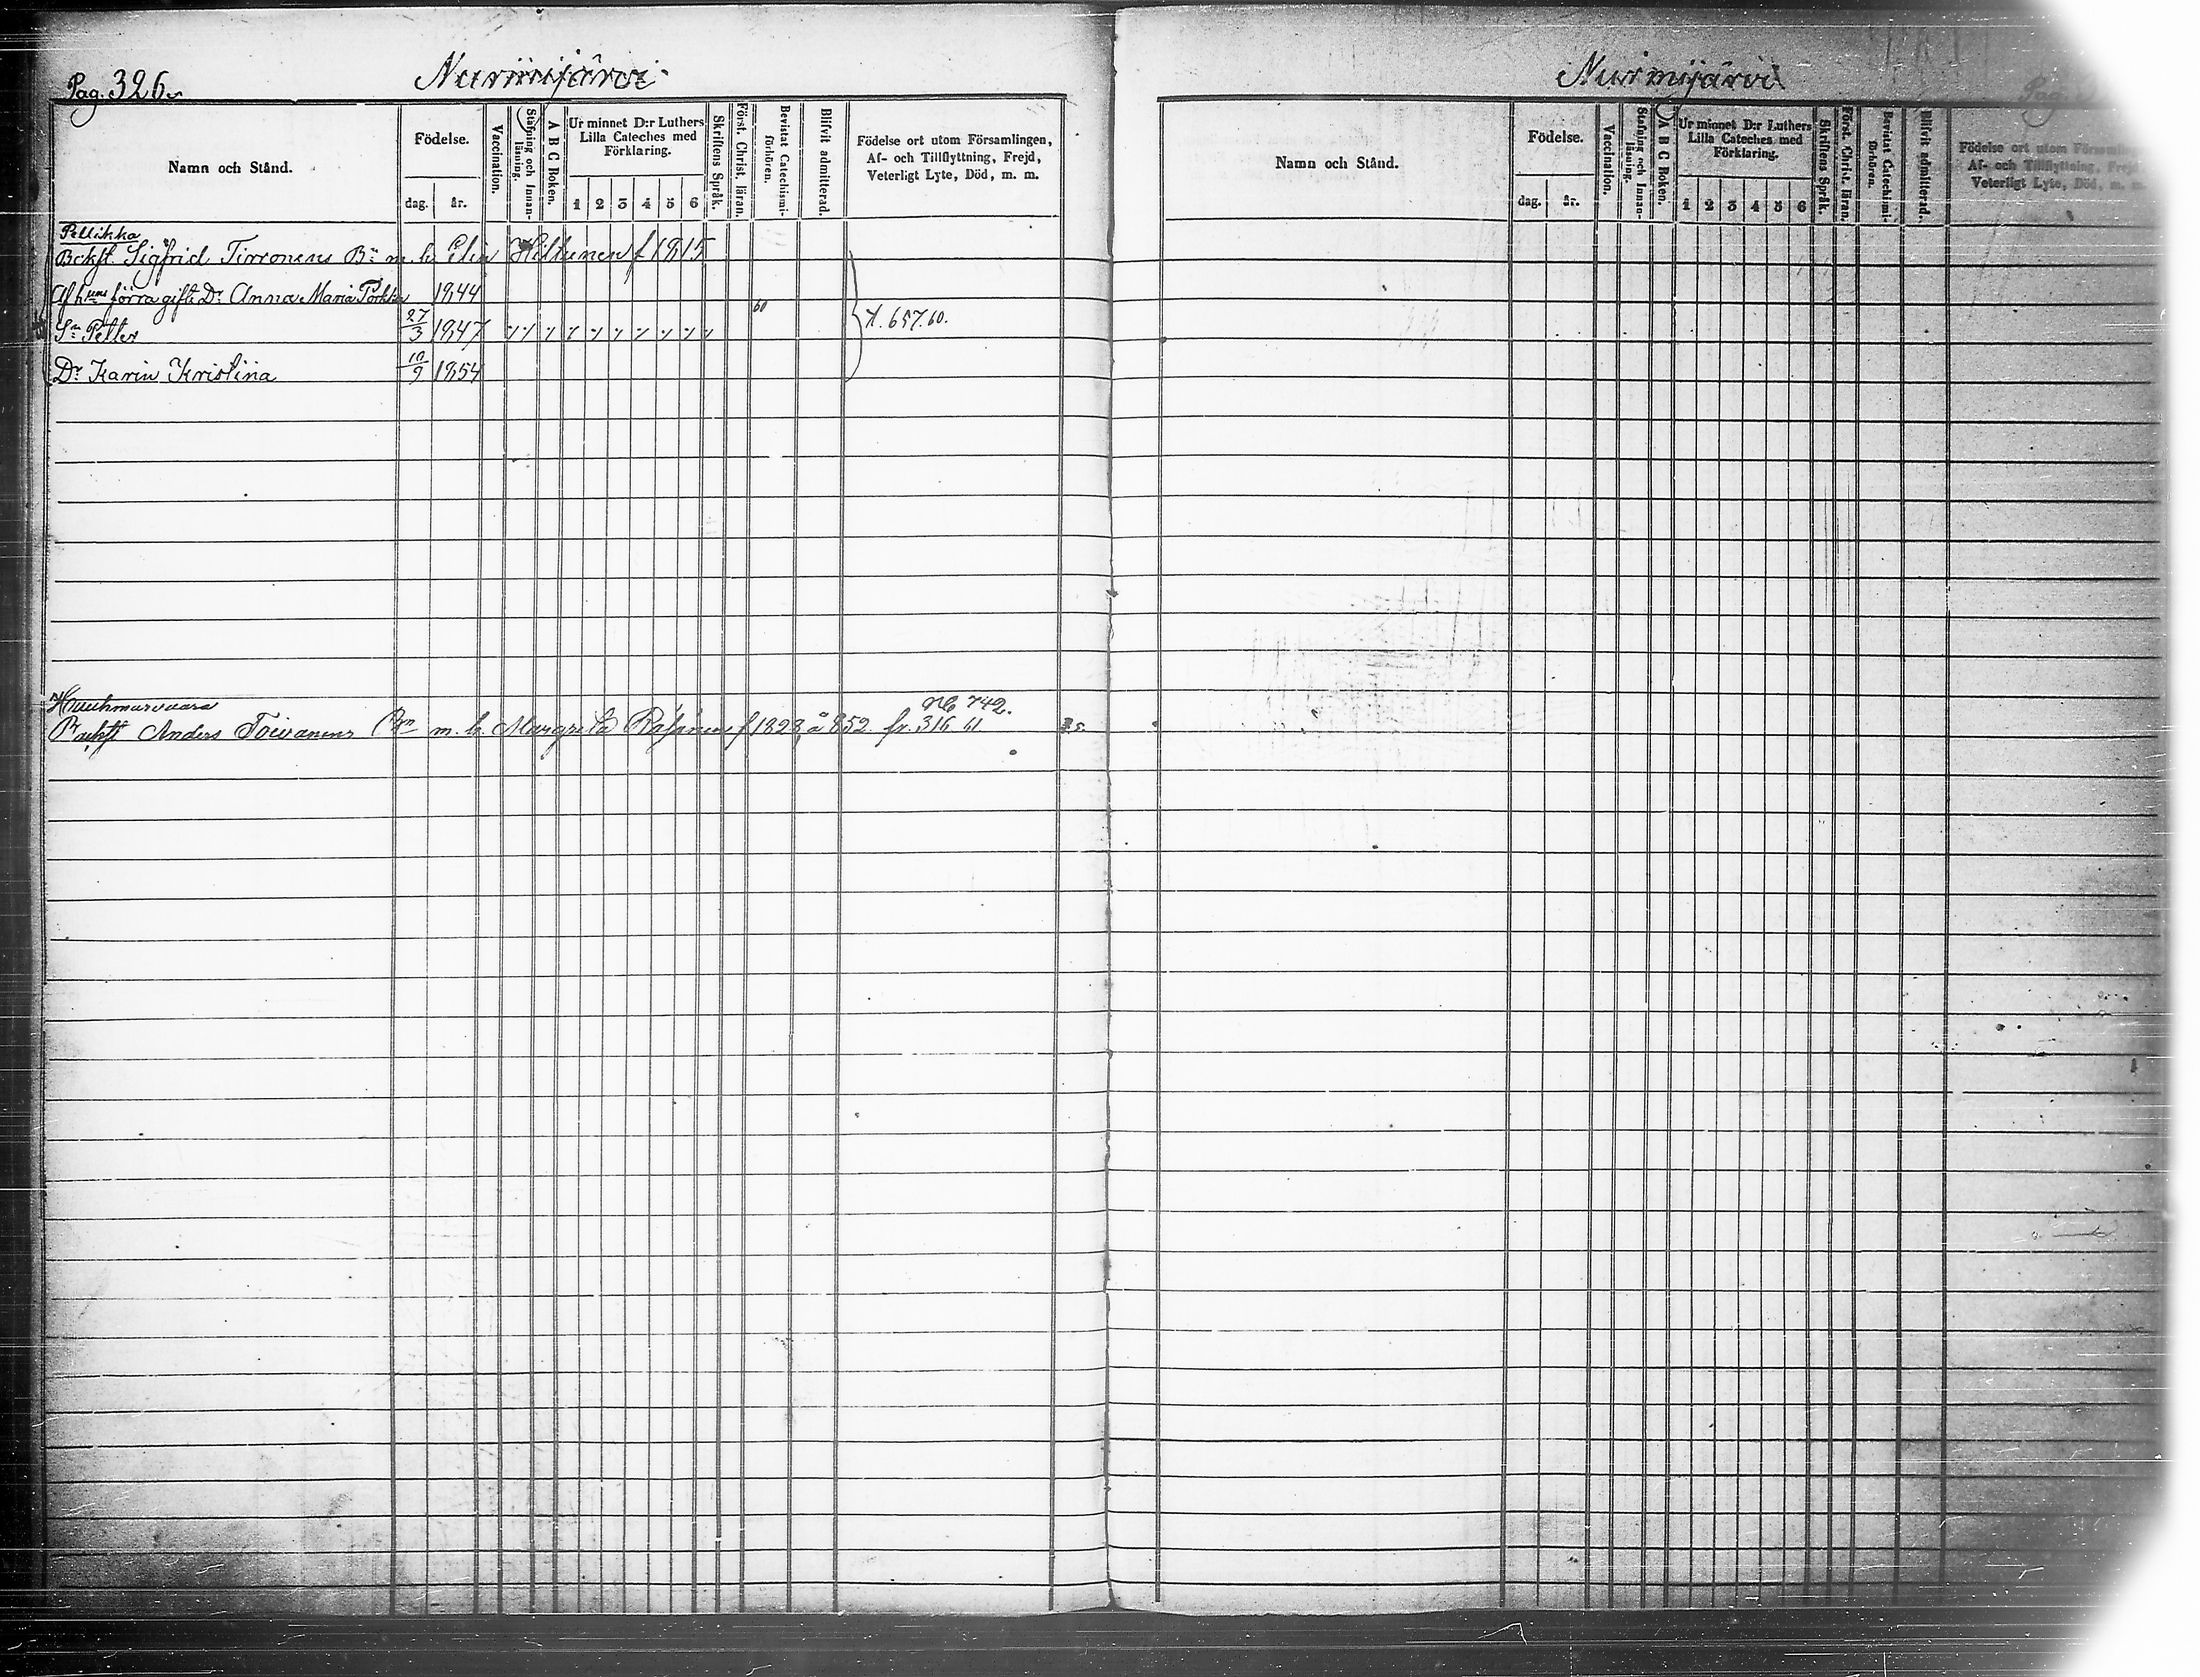 Pag. 326.
Nurmijärvi
Namn och Stånd.
Födelse.
dag. år.
Vaccination.
Stafning och Innanläsning.
A B C Boken.
Ur minnet D:r Luthers Lilla Cateches med Förklaring.
1 2 3 4 5 6
Skriftens Språk.
Först. Christ. läran.
Bevistat Catechismi-förhören.
Blifvit admitterad.
Födelse ort utom Församlingen,
Af- och Tillflyttning, Frejd,
Veterligt Lyte, Död, m. m.
Pellikka
Bckst. Sigfrid Tirronens Bn m. h. Elin Hiltunen f 1815
Af hns förra gifte Dr Anna Maria 1844
Sn Petter 27/3 1847 60
N. 657.60.
Dr Karin Kristina 10/9 1854
742.
Anders Toivanens m. h. Margreta Räsänen f 1828, å 852. fr. 316 61
Nurmijärvi
Pag.
Namn och Stånd.
Födelse.
dag. år.
Vaccination.
Stafning och Innanläsning.
A B C Boken.
Ur minnet D:r Luthers Lilla Cateches med Förklaring.
1 2 3 4 5 6
Skriftens Språk.
Först. Christ. läran.
Bevistat Catechismi-förhören.
Blifvit admitterad.
Födelse ort utom Församling
Af- och Tillflyttning, Frejd
Veterligt Lyte, Död, m. m.